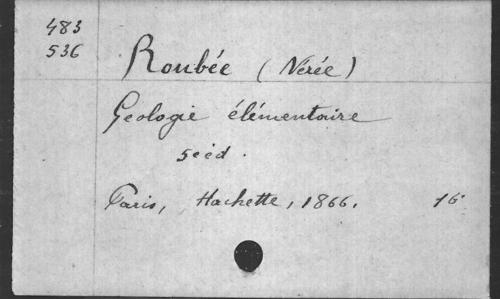 483
536
Roubée (Nérée)
Geologie élémentaire
5e éd.
Paris, Hachette, 1866. 16